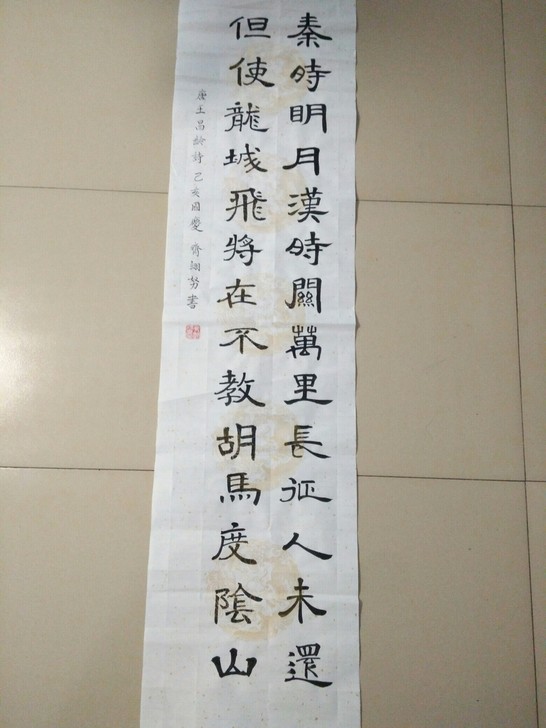 秦時明月漢時關萬里長征人未還
但使龍城飛將在不教胡馬度陰山
唐王昌齡詩 己亥國慶 齊細努書